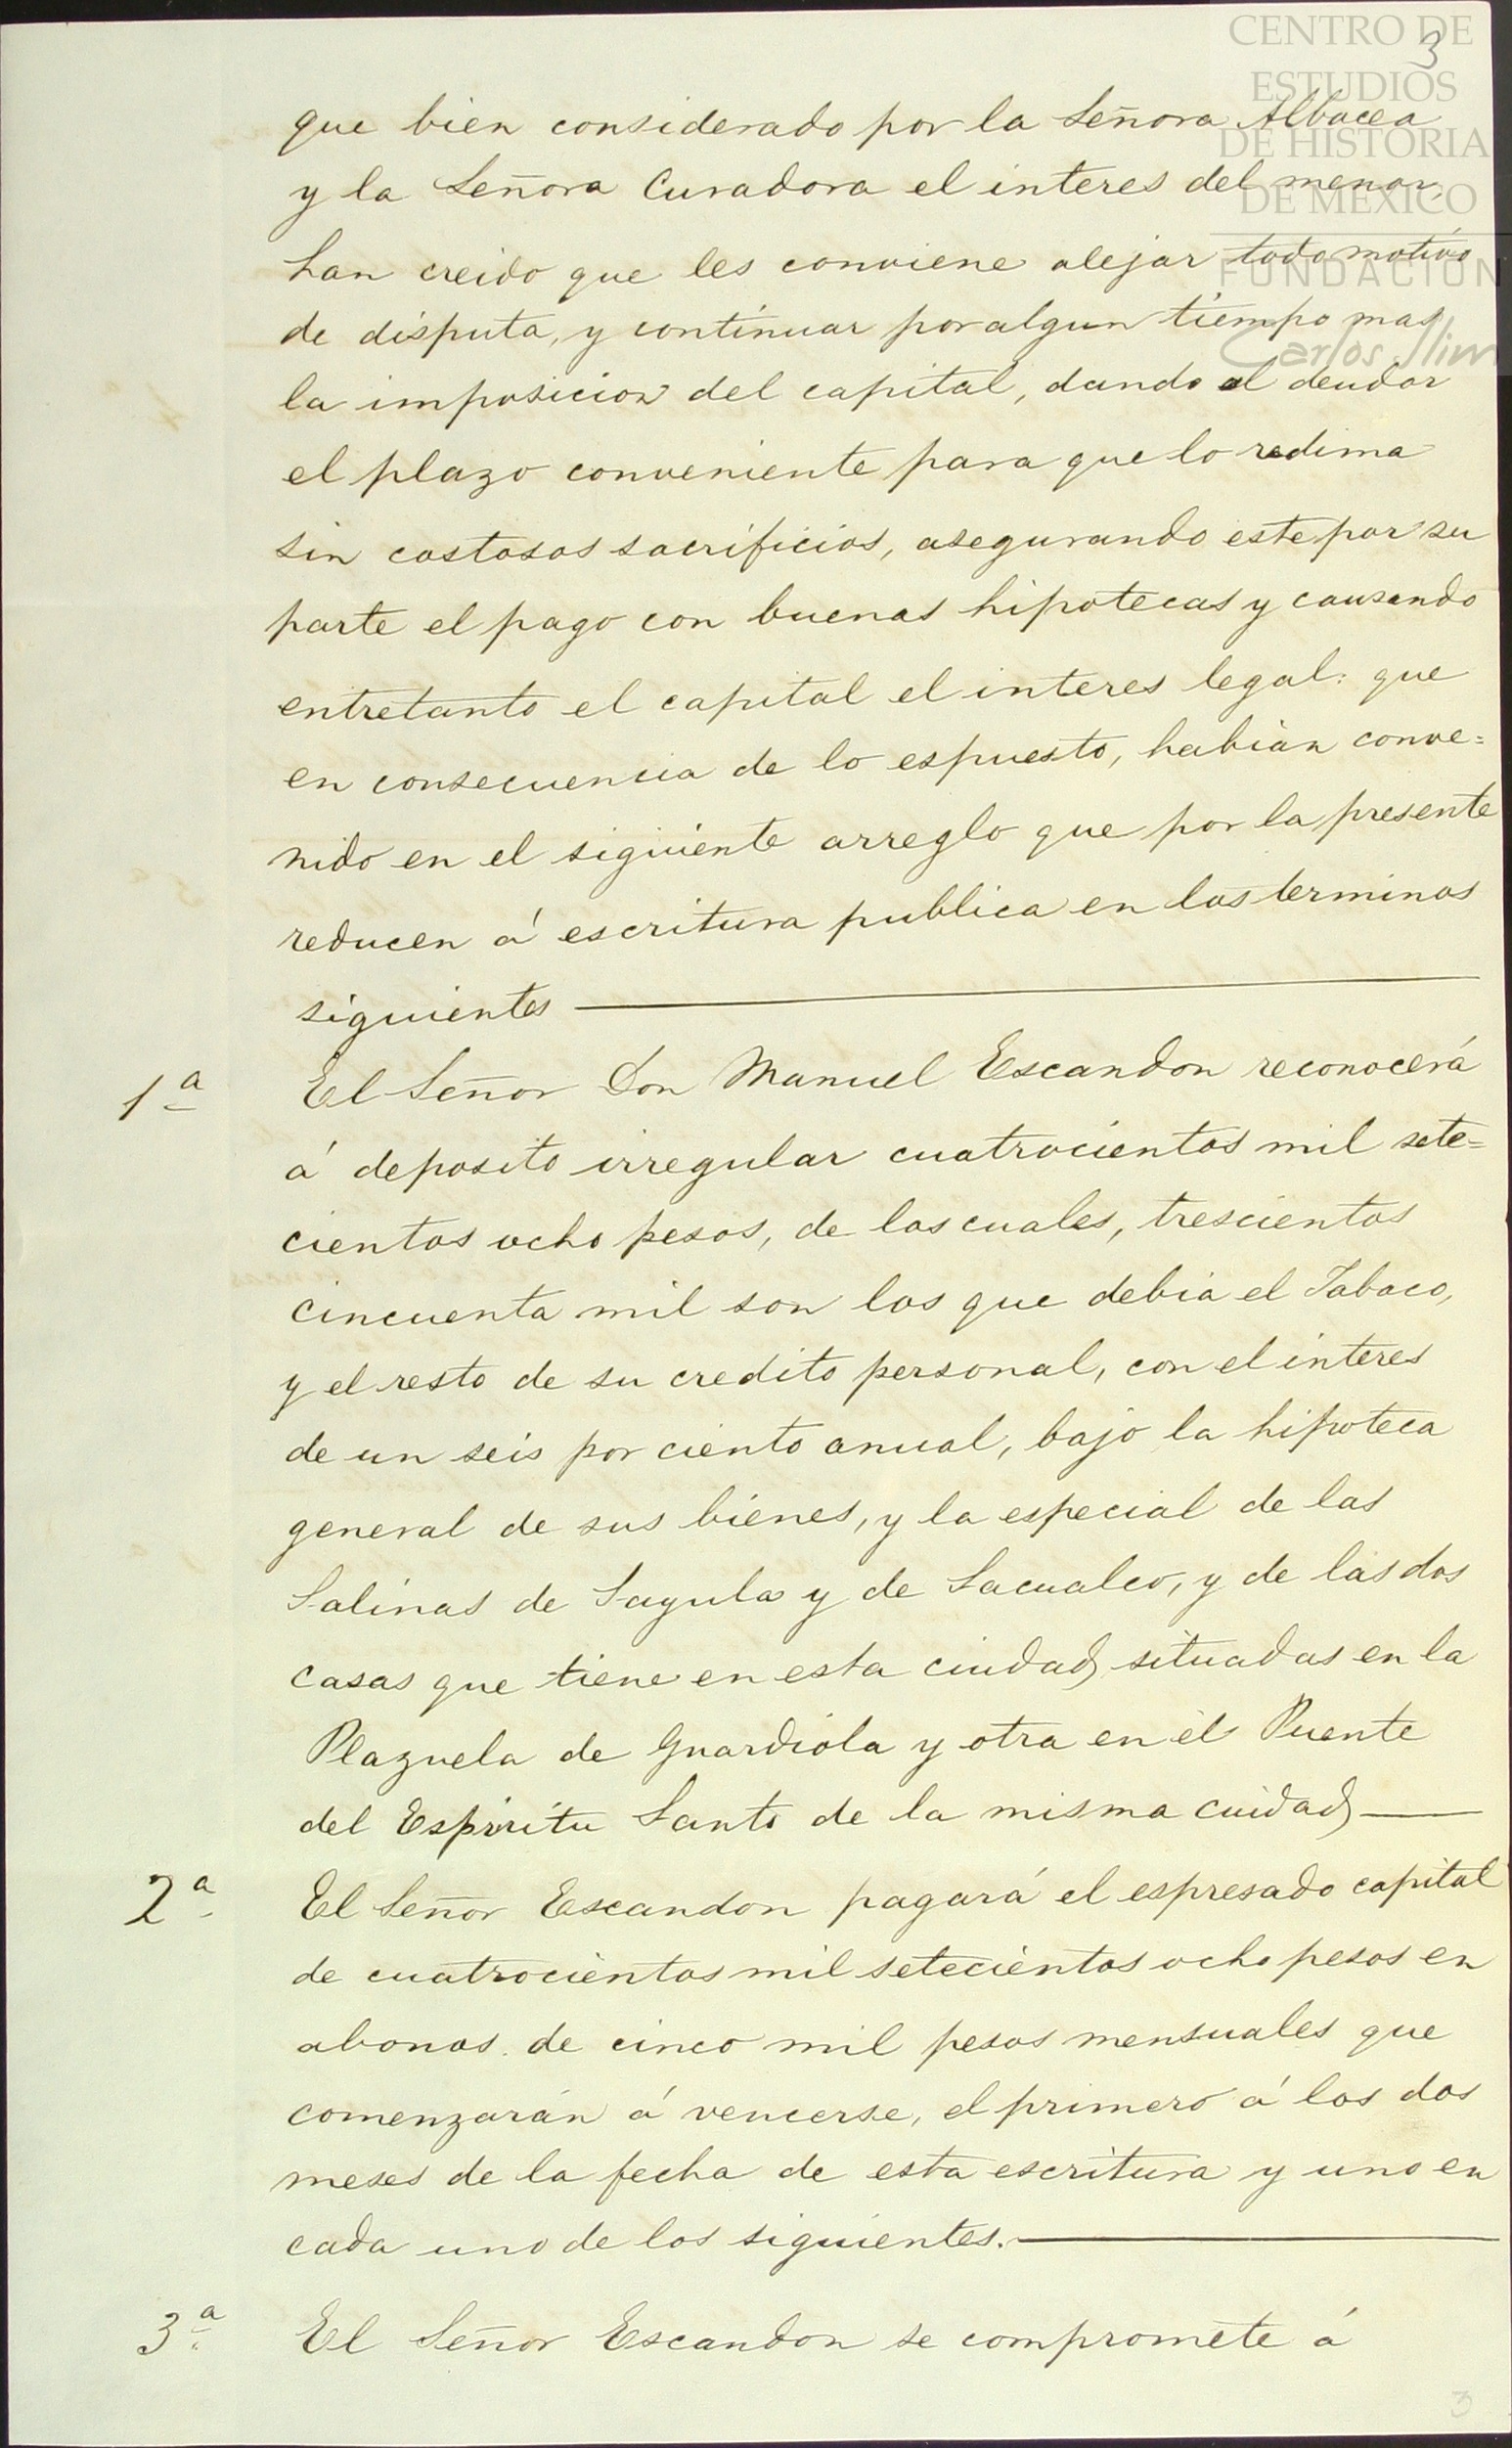 CENTRO DE
ESTUDIOS
DE HISTORIA
DE MEXICO
FUNDACION
Carlos Slim
3
que bien considerado por la Señora Albacea
y la Señora Curadora el interes del menor,
han creido que les conviene alejar todo motivo
de disputa, y continuar por algun tiempo mas
la imposicion del capital, dando al deudor
el plazo conveniente para que lo redima
sin costosos sacrificios, asegurando este por su
parte el pago con buenas hipotecas y causando
entretanto el capital el interes legal: que
en consecuencia de lo espuesto, habian conve=
nido en el siguiente arreglo que por la presente
reducen á escritura publica en los terminos
siguientes
1ª El Señor Don Manuel Escandon reconocerá
á deposito irregular cuatrocientos mil sete=
cientos ocho pesos, de los cuales, trescientos
cincuenta mil son los que debia el Tabaco,
y el resto de su credito personal, con el interes
de un seis por ciento anual, bajo la hipoteca
general de sus bienes, y la especial de las
Salinas de Sayula y de Sacualco, y de las dos
casas que tiene en esta ciudad situadas en la
Plazuela de Guardiola y otra en el Puente
del Espiritu Santo de la misma cuidad
2ª El Señor Escandon pagará el espresado capital
de cuatrocientos mil setecientos ocho pesos en
abonos de cinco mil pesos mensuales que
comenzarán á vencerse, el primero á los dos
meses de la fecha de esta escritura y uno en
cada uno de los siguientes.
3ª El Señor Escandon se compromete á
3